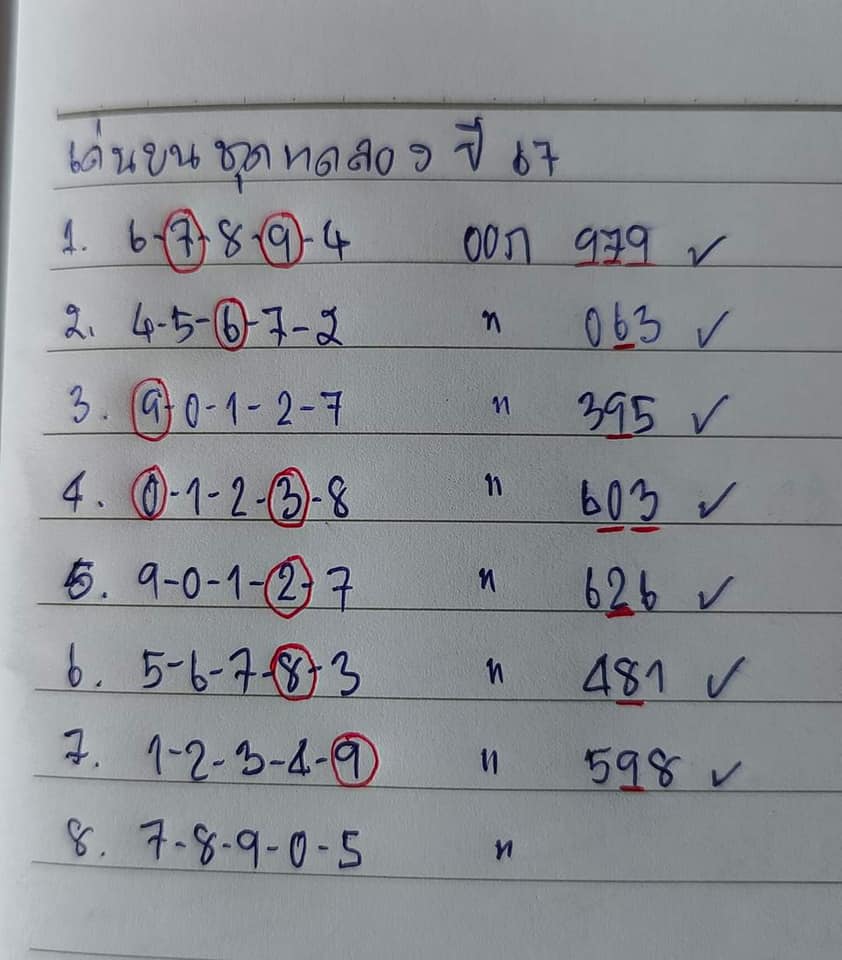 เด่นบน ชุดทดลอง ปี 67
1. 6-7-8-9-4 ออก 979 ✓
2. 4-5-6-7-2 " 063 ✓
3. 9-0-1-2-7 " 395 ✓
4. 0-1-2-3-8 " 603 ✓
5. 9-0-1-2-7 " 626 ✓
6. 5-6-7-8-3 " 481 ✓
7. 1-2-3-4-9 " 598 ✓
8. 7-8-9-0-5 "